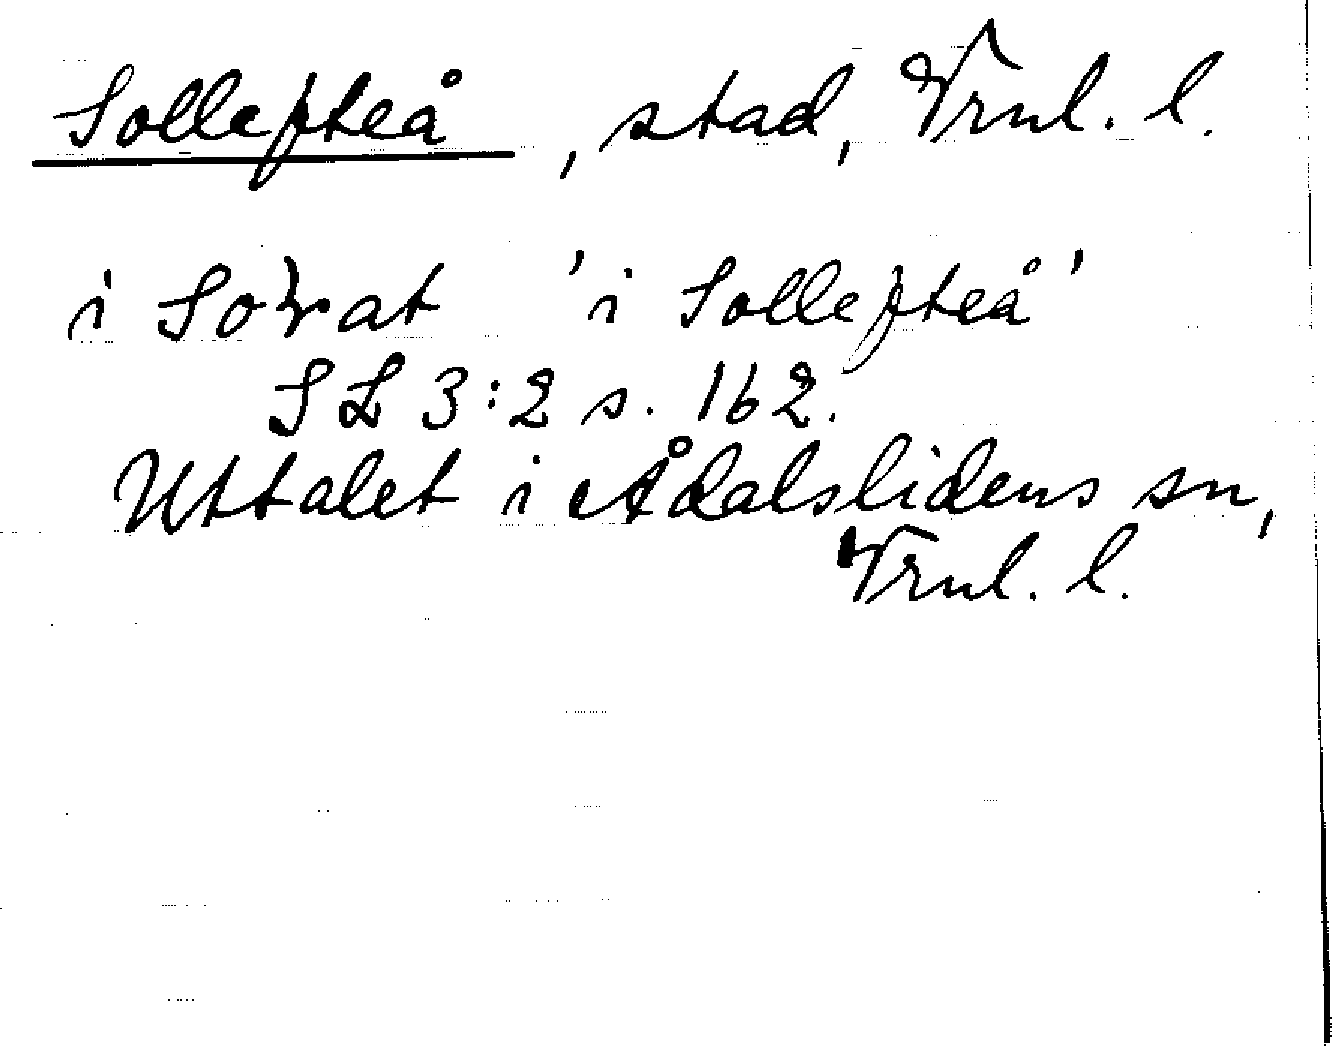 Sollefteå, stad, Vrnl. l.
i 'i Sollefteå'
SL 3:2 s. 162.
Uttalet i Ådalslidens sn,
Vrnl. l.